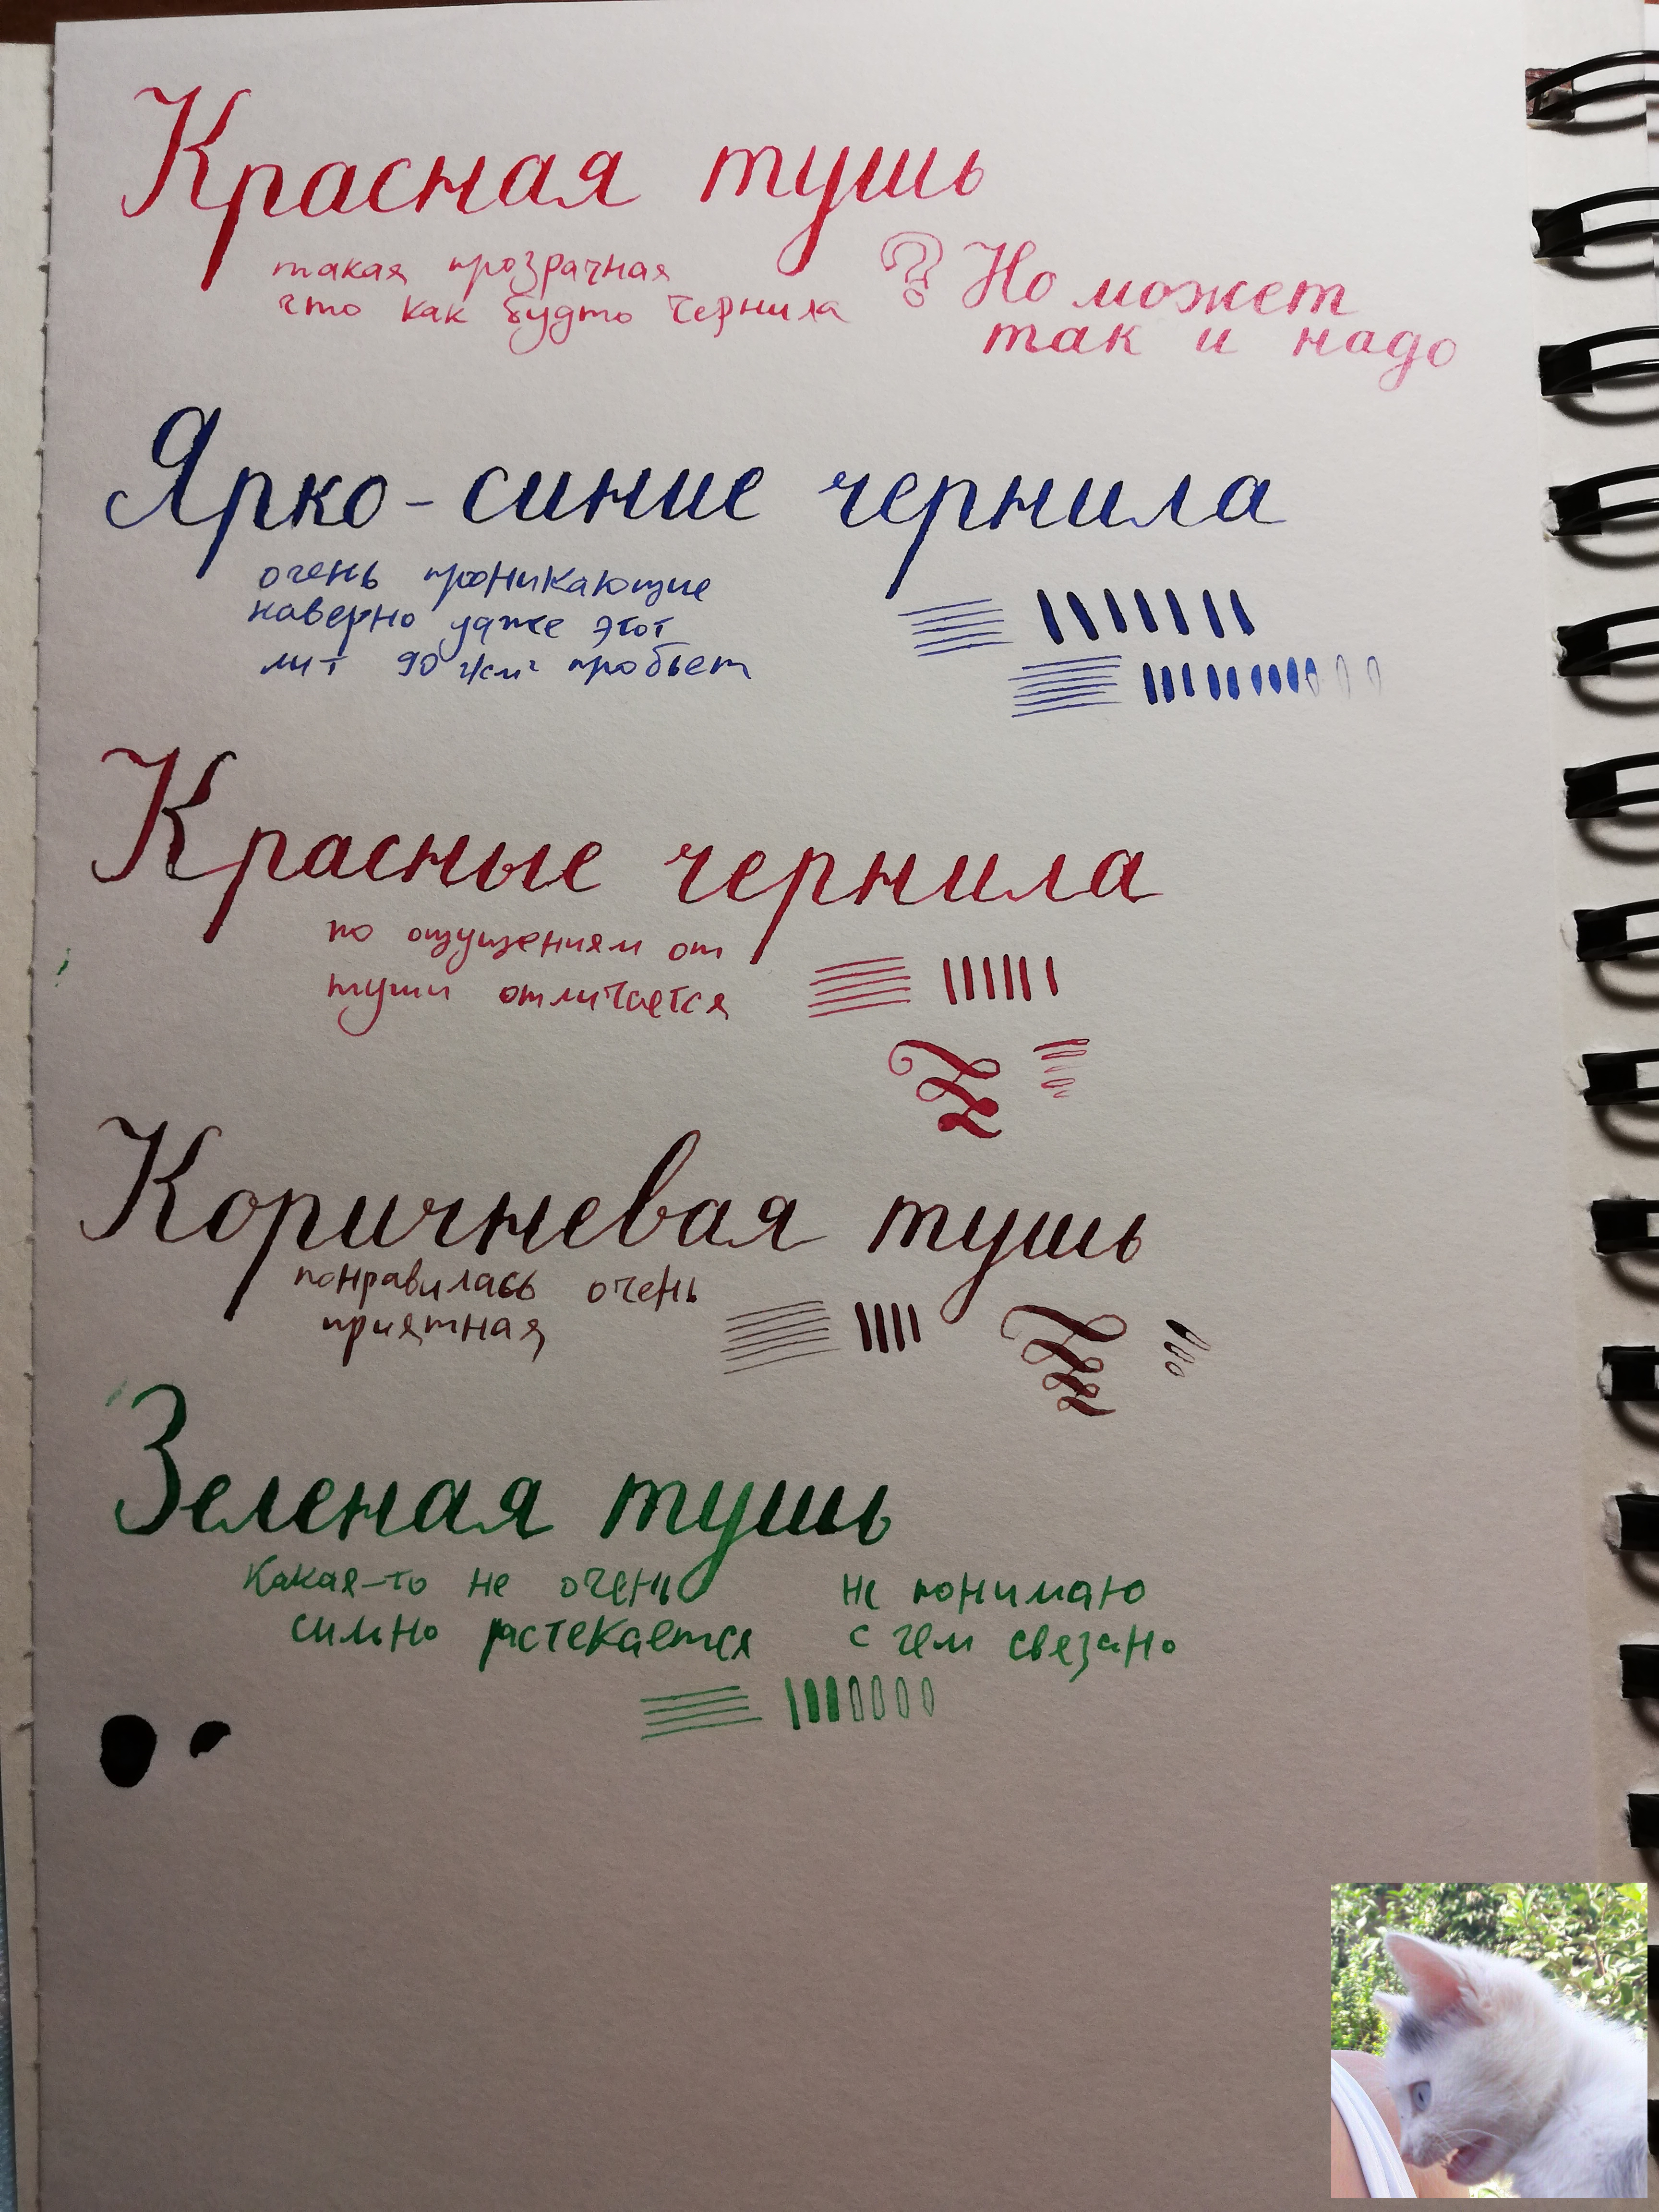 Красная тушь
такая прозрачная
что как будто чернила
? Но может
так и надо
Ярко-синие чернила
очень проникающие
наверно даже этот
лит 90 г/см² пробьет
Красные чернила
по ощущениям от
туши отличается
Коричневая тушь
понравилась очень
приятная
Зеленая тушь
Какая-то не очень
сильно растекается
не понимаю
с чем связано